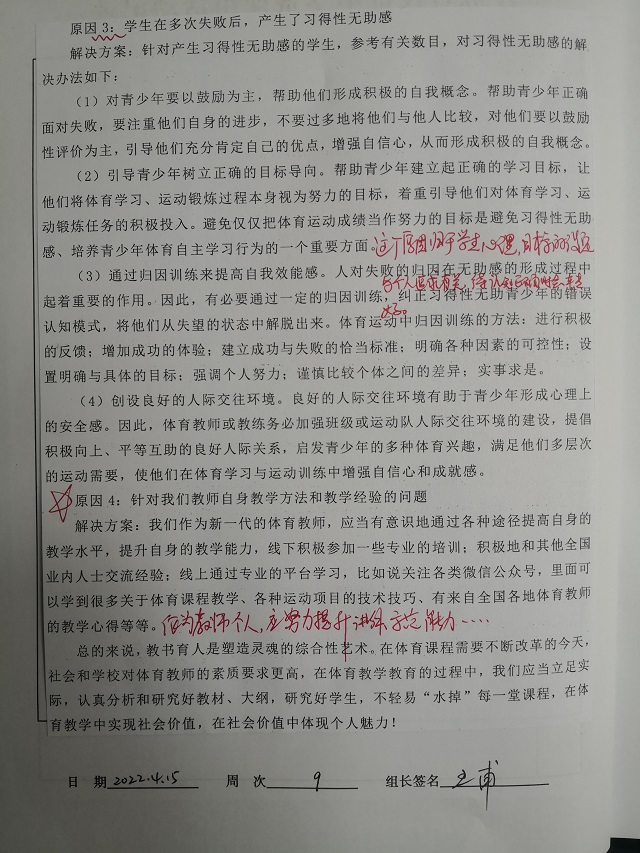 原因3：学生在多次失败后，产生了习得性无助感
解决方案：针对产生习得性无助感的学生，参考有关数目，对习得性无助感的解
决办法如下：
（1）对青少年要以鼓励为主，帮助他们形成积极的自我概念。帮助青少年正确
面对失败，要注重他们自身的进步，不要过多地将他们与他人比较，对他们要以鼓励
性评价为主，引导他们充分肯定自己的优点，增强自信心，从而形成积极的自我概念。
（2）引导青少年树立正确的目标导向。帮助青少年建立起正确的学习目标，让
他们将体育学习、运动锻炼过程本身视为努力的目标，着重引导他们对体育学习、运
动锻炼任务的积极投入。避免仅仅把体育运动成绩当作努力的目标是避免习得性无助
感、培养青少年体育自主学习行为的一个重要方面。这个原因归于学生心理，目标的设定
（3）通过归因训练来提高自我效能感。人对失败的归因在无助感的形成过程中
与个人
起着重要的作用。因此，有必要通过一定的归因训练，纠正习得性无助青少年的错误
认知模式，将他们从失望的状态中解脱出来。体育运动中归因训练的方法：进行积极
的反馈；增加成功的体验；建立成功与失败的恰当标准；明确各种因素的可控性；设
置明确与具体的目标；强调个人努力；谨慎比较个体之间的差异；实事求是。
（4）创设良好的人际交往环境。良好的人际交往环境有助于青少年形成心理上
的安全感。因此，体育教师或教练务必加强班级或运动队人际交往环境的建设，提倡
积极向上、平等互助的良好人际关系，启发青少年的多种体育兴趣，满足他们多层次
的运动需要，使他们在体育学习与运动训练中增强自信心和成就感。
原因4：针对我们教师自身教学方法和教学经验的问题
解决方案：我们作为新一代的体育教师，应当有意识地通过各种途径提高自身的
教学水平，提升自身的教学能力，线下积极参加一些专业的培训；积极地和其他全国
业内人士交流经验；线上通过专业的平台学习，比如说关注各类微信公众号，里面可
以学到很多关于体育课程教学、各种运动项目的技术技巧、有来自全国各地体育教师
的教学心得等等。作为教师个人，应努力提升讲练示范能力……
总的来说，教书育人是塑造灵魂的综合性艺术。在体育课程需要不断改革的今天，
社会和学校对体育教师的素质要求更高，在体育教学教育的过程中，我们应当立足实
际，认真分析和研究好教材、大纲，研究好学生，不轻易“水掉”每一堂课程，在体
育教学中实现社会价值，在社会价值中体现个人魅力！
日 期 2022.4.15 周 次 9 组长签名 王甫